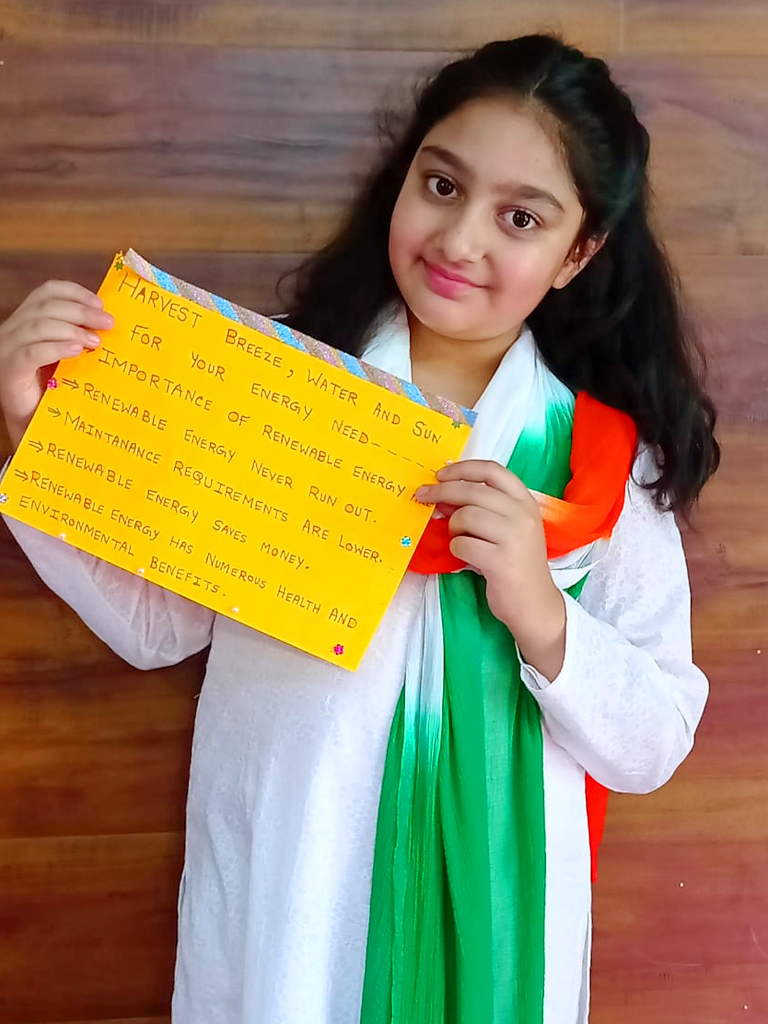 HARVEST BREEZE, WATER AND SUN
FOR YOUR ENERGY NEED-----
IMPORTANCE OF RENEWABLE ENERGY
⇒ RENEWABLE ENERGY NEVER RUN OUT.
⇒ MAINTANANCE REQUIREMENTS ARE LOWER.
⇒ RENEWABLE ENERGY SAVES MONEY.
⇒ RENEWABLE ENERGY HAS NUMEROUS HEALTH AND
ENVIRONMENTAL BENEFITS.